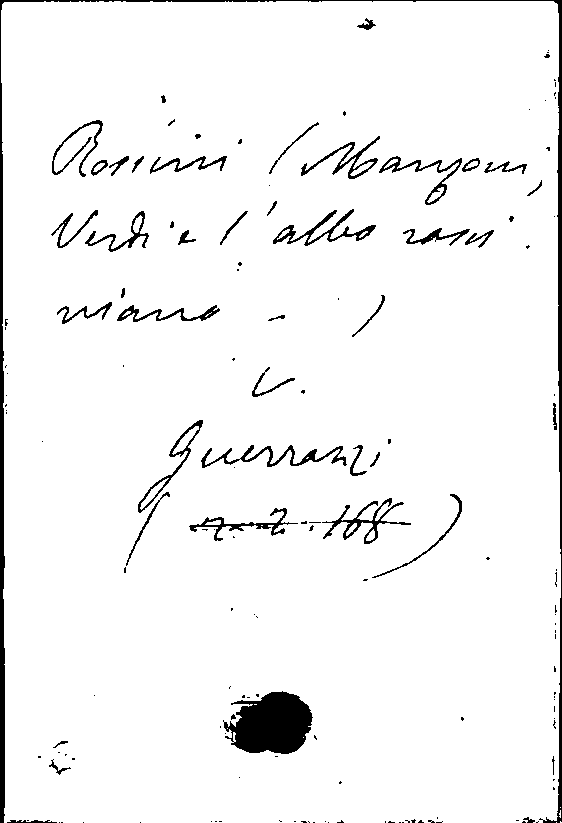 Rossini (Manzoni,
Verdi e l'albo rossi
niano - )
v.
Guerrazzi
( z. 2. 168 )